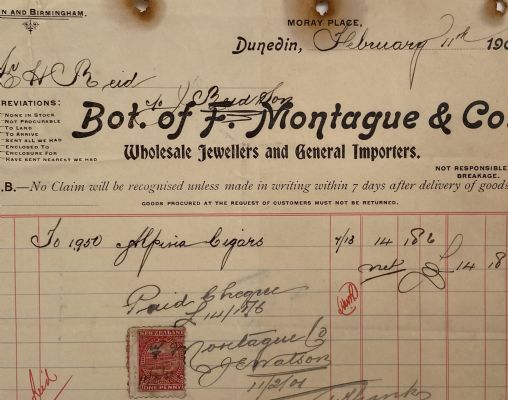 N AND BIRMINGHAM.
MORAY PLACE,
Dunedin, February 11th 190
E H Reid
REVIATIONS:
NONE IN STOCK
NOT PROCURABLE
TO LAND
TO ARRIVE
SENT ALL WE HAD
ENCLOSED TO
ENCLOSURE FOR
HAVE SENT NEAREST WE HAD
Bot. of F. Montague & Co.
Wholesale Jewellers and General Importers.
NOT RESPONSIBLE
BREAKAGE.
.B.—No Claim will be recognised unless made in writing within 7 days after delivery of goods
GOODS PROCURED AT THE REQUEST OF CUSTOMERS MUST NOT BE RETURNED.
To 1,950 Alpina Cigars 7/13 14 18 6
net £ 14 18
Paid Cheque
£14/18/6
NEW ZEALAND
Montague Co
J E Watson
ONE PENNY
11/2/01
Thanks